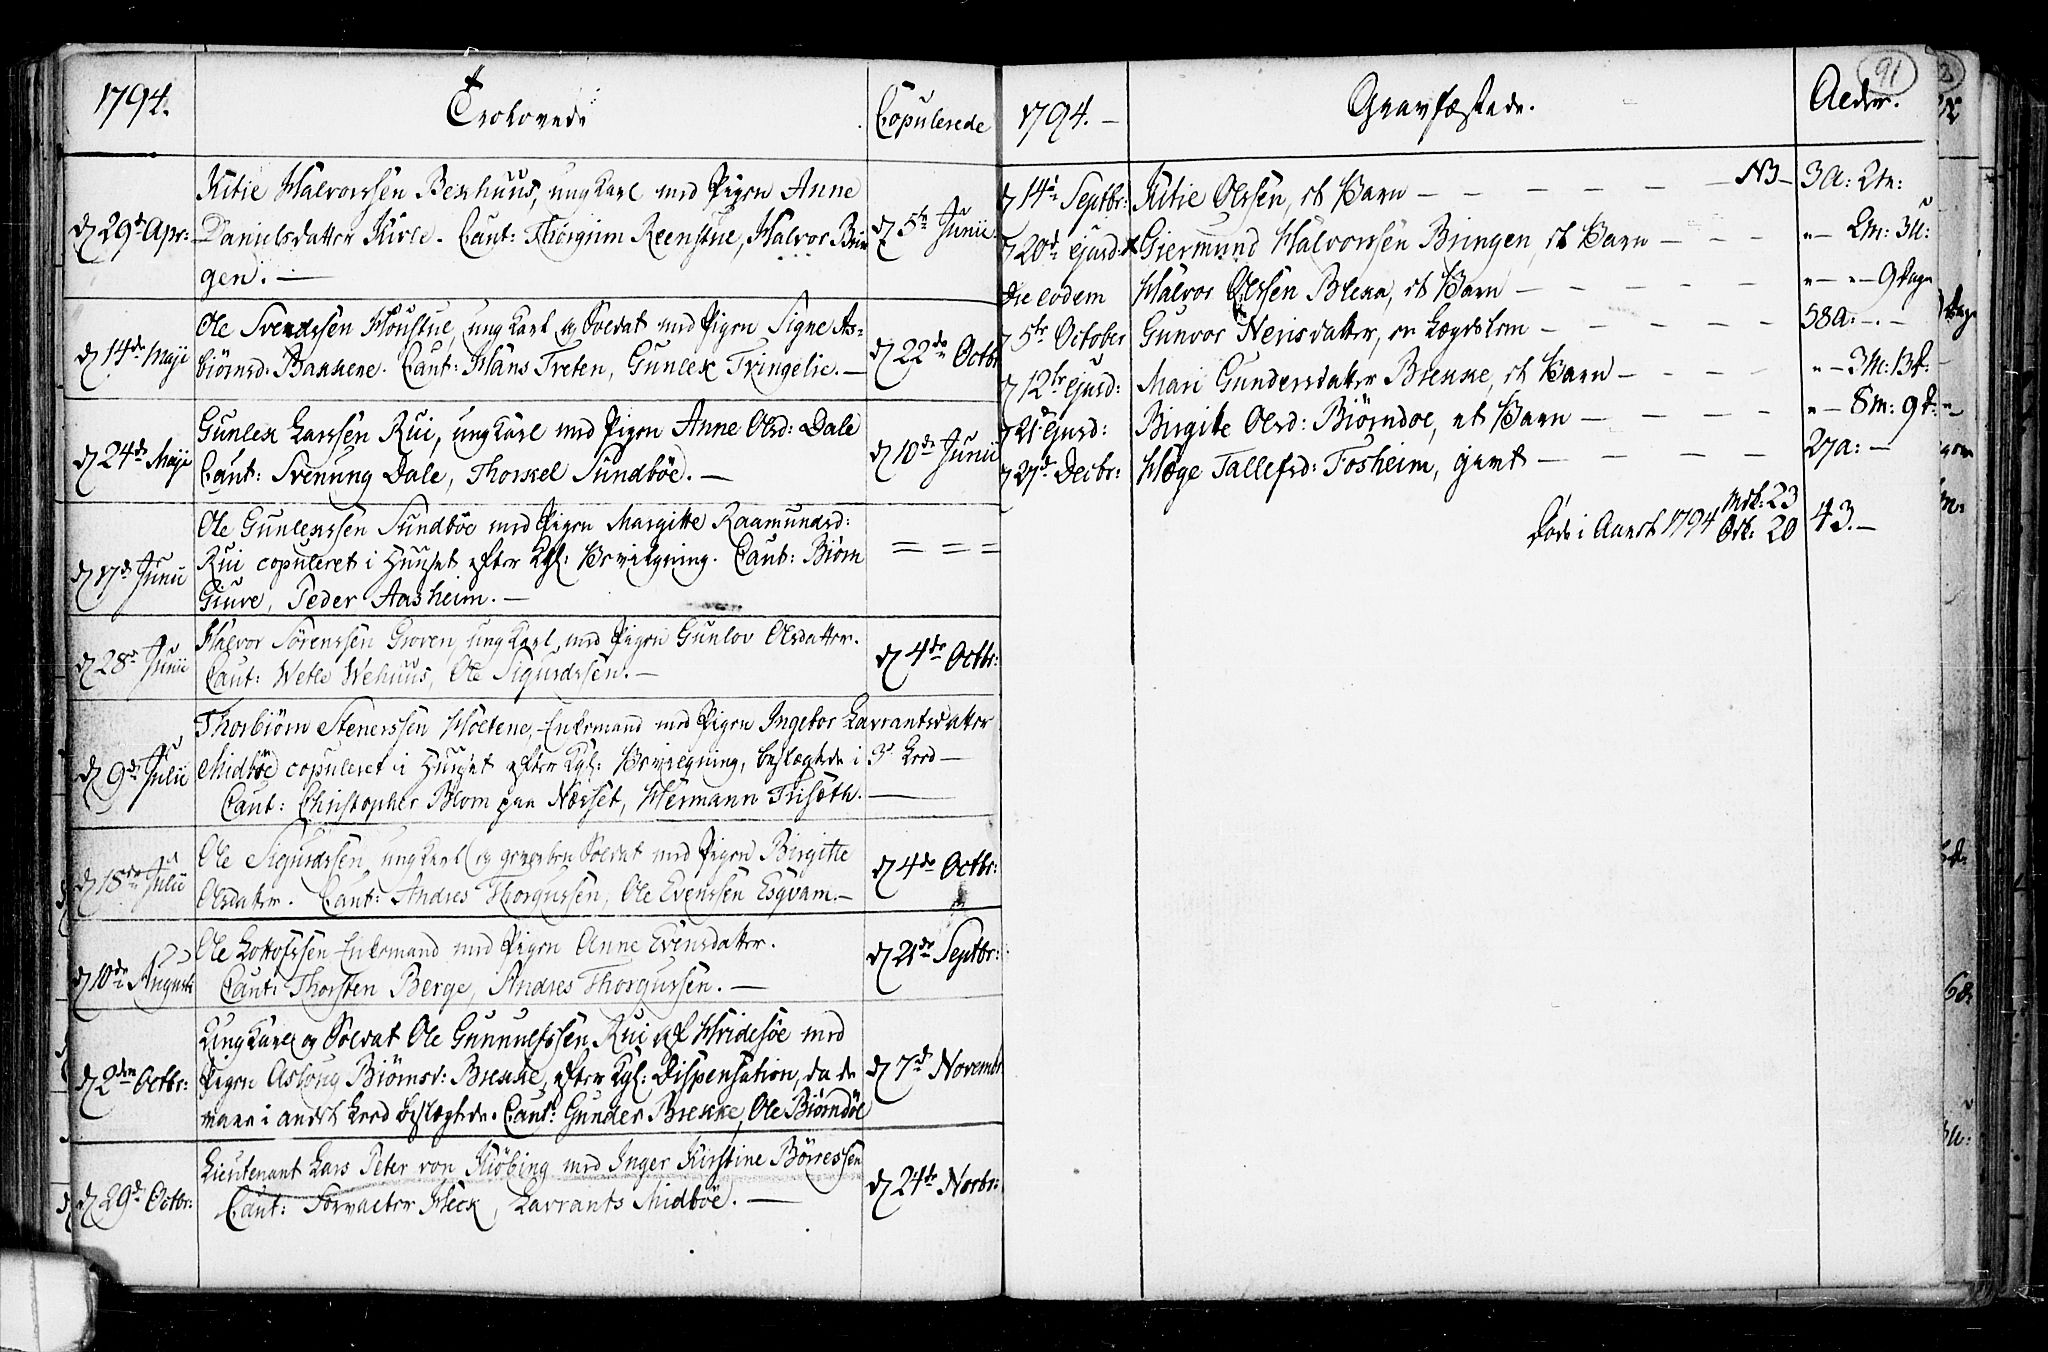 1794.
Trolovede
Copulerede
d 29d Apr:
Kitie Halvorssen Berhuus, ung Karl med Pigen Anne
Danielsdatter Kirle. Caut: Thorgrim Reenstue, Halvor Brin
gen. —
d 5te Junii.
d 14de Maji
Ole Svendssen Houstue, ung Karl og Soldat med Pigen Signe As-
biørnsd: Bakkene. Caut: Hans Treten, Gunlek Tringelie. —
d 22de Octbr
d 24de Maji
Gunlek Larssen Rui, ung Karl med Pigen Anne Olsd: Dale
Caut: Svenung Dale, Thorkel Sundbøe. —
d 10de Junii
d 17de Junii
Ole Gunlekssen Sundbøe med Pigen Margitte Raamundsd:
Rui copuleret i Huuset efter Kgl: Bevilgning. Caut: Biørn
Giuve, Peder Aasheim. —
= = =
d 28de Junii
Halvor Sørenssen Groven, ung Karl, med Pigen Gunlov Olsdatter.
Caut: Wetle Wehuus, Ole Sigurdssen. —
d 4de Octbr:
d 9de Julii
Thorbiørn Stenerssen Holtene, Enkemand med Pigen Ingebor Lavrantsdatter
Midbøe copuleret i Huuset efter Kgl: Bevilgning, beslægtede i 3d Leed —
Caut: Christopher Blom paa Næsset, Hermann Trisæth. —
d 18de Julii
Ole Sigurdssen, ung Karl og geworben Soldat med Pigen Birgitte
Olsdatter. Caut: Andres Thorgussen, Ole Evenssen Esqvam. —
d 4de Octbr:
d 10de Augusti
Ole Lottofssen Enkemand med Pigen Anne Evensdatter.
Caut: Thorsten Berge, Andres Thorgussen. —
d 21de Septbr:
d 2den Octbr:
Ung Karl og Soldat Ole Gunnulfssen Rui af Hvidesøe med
Pigen Asloug Biørnsd: Brekke, efter Kgl: Dispensation, da de
vare i andet Leed beslægtede. Caut: Gunder Brekke, Ole Biørndøl
d 7d Novembr
d 29de Octbr:
Lieutenant Lars Peter von Kiøbing med Inger Kirstine Børressen
Caut: Forvalter Heck, Lavrants Midbøe. —
d 24de Novbr:
91
1794. —
Gravfæstede.
Alder.
d 14de Septbr: Kitie Olssen, et Barn — NB — 3 A: 2 M:
d 20de Ejusd: Giermund Halvorssen Bringen, et Barn — " — 2 M: 3 U:
Die eodem Halvor Olssen Blexa, et Barn — " — " — 9 Dage
d 5te October Gunvor Nerisdatter, en Lægdslem — 58 A: — . —
d 12te Ejusd: Mari Gundersdatter Brekke, et Barn — " — 3 M: 13 D:
d 21de Ejusd: Birgite Olsd: Biørndøe, et Barn — " — 8 M: 9 D:
d 27de Decbr: Hæge Tallefsd: Fosheim, givt — 27 A: —
Døde i Aaret 1794 Mdk: 23
Qvk: 20 43. —